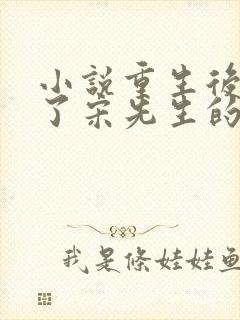 小説重生後
了宋先生的
我是條娃娃魚